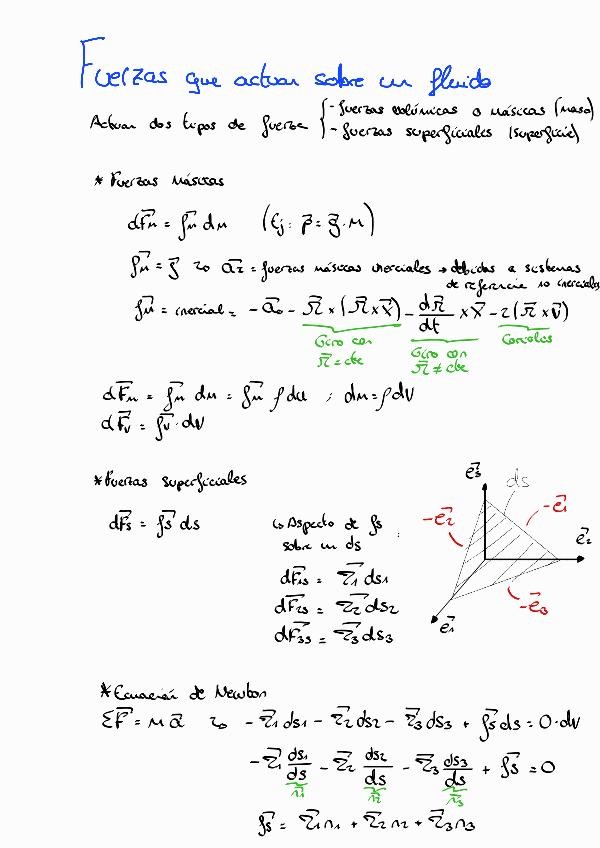 Fuerzas que actuan sobre un fluido
Actuan dos tipos de fuerza { - fuerzas volúmicas o másicas (masa)
- fuerzas superficiales (superficie)
* Fuerzas Másicas
dF⃗m = f⃗m dm (Ej: p⃗ = g⃗·m)
f⃗m = g⃗ ~> a⃗z = fuerzas másicas inerciales → debidas a sistemas
de referencia no inerciales
f⃗m = inercial = -a⃗o - Ω⃗ x (Ω⃗ x X⃗) - dΩ⃗/dt x X⃗ - 2(Ω⃗ x V⃗)
Giro con Ω⃗ = cte
Giro con Ω⃗ ≠ cte
Coriolis
dF⃗m = f⃗m dm = f⃗m ρ du ; dm = ρ dV
dF⃗v = f⃗v · dV
* Fuerzas superficiales
dF⃗s = f⃗s ds
↳ Aspecto de fs
sobre un ds
dF⃗1s = τ⃗1 ds1
dF⃗2s = τ⃗2 ds2
dF⃗3s = τ⃗3 ds3
e⃗3
ds
-e⃗1
-e⃗2
e⃗2
-e⃗3
e⃗1
* Ecuación de Newton
ΣF⃗ = m a⃗ ~> -τ⃗1 ds1 - τ⃗2 ds2 - τ⃗3 ds3 + f⃗s ds = 0·dV
-τ⃗1 ds1/ds - τ⃗2 ds2/ds - τ⃗3 ds3/ds + f⃗s = 0
n⃗1 n⃗2 n⃗3
f⃗s = τ⃗1n1 + τ⃗2n2 + τ⃗3n3